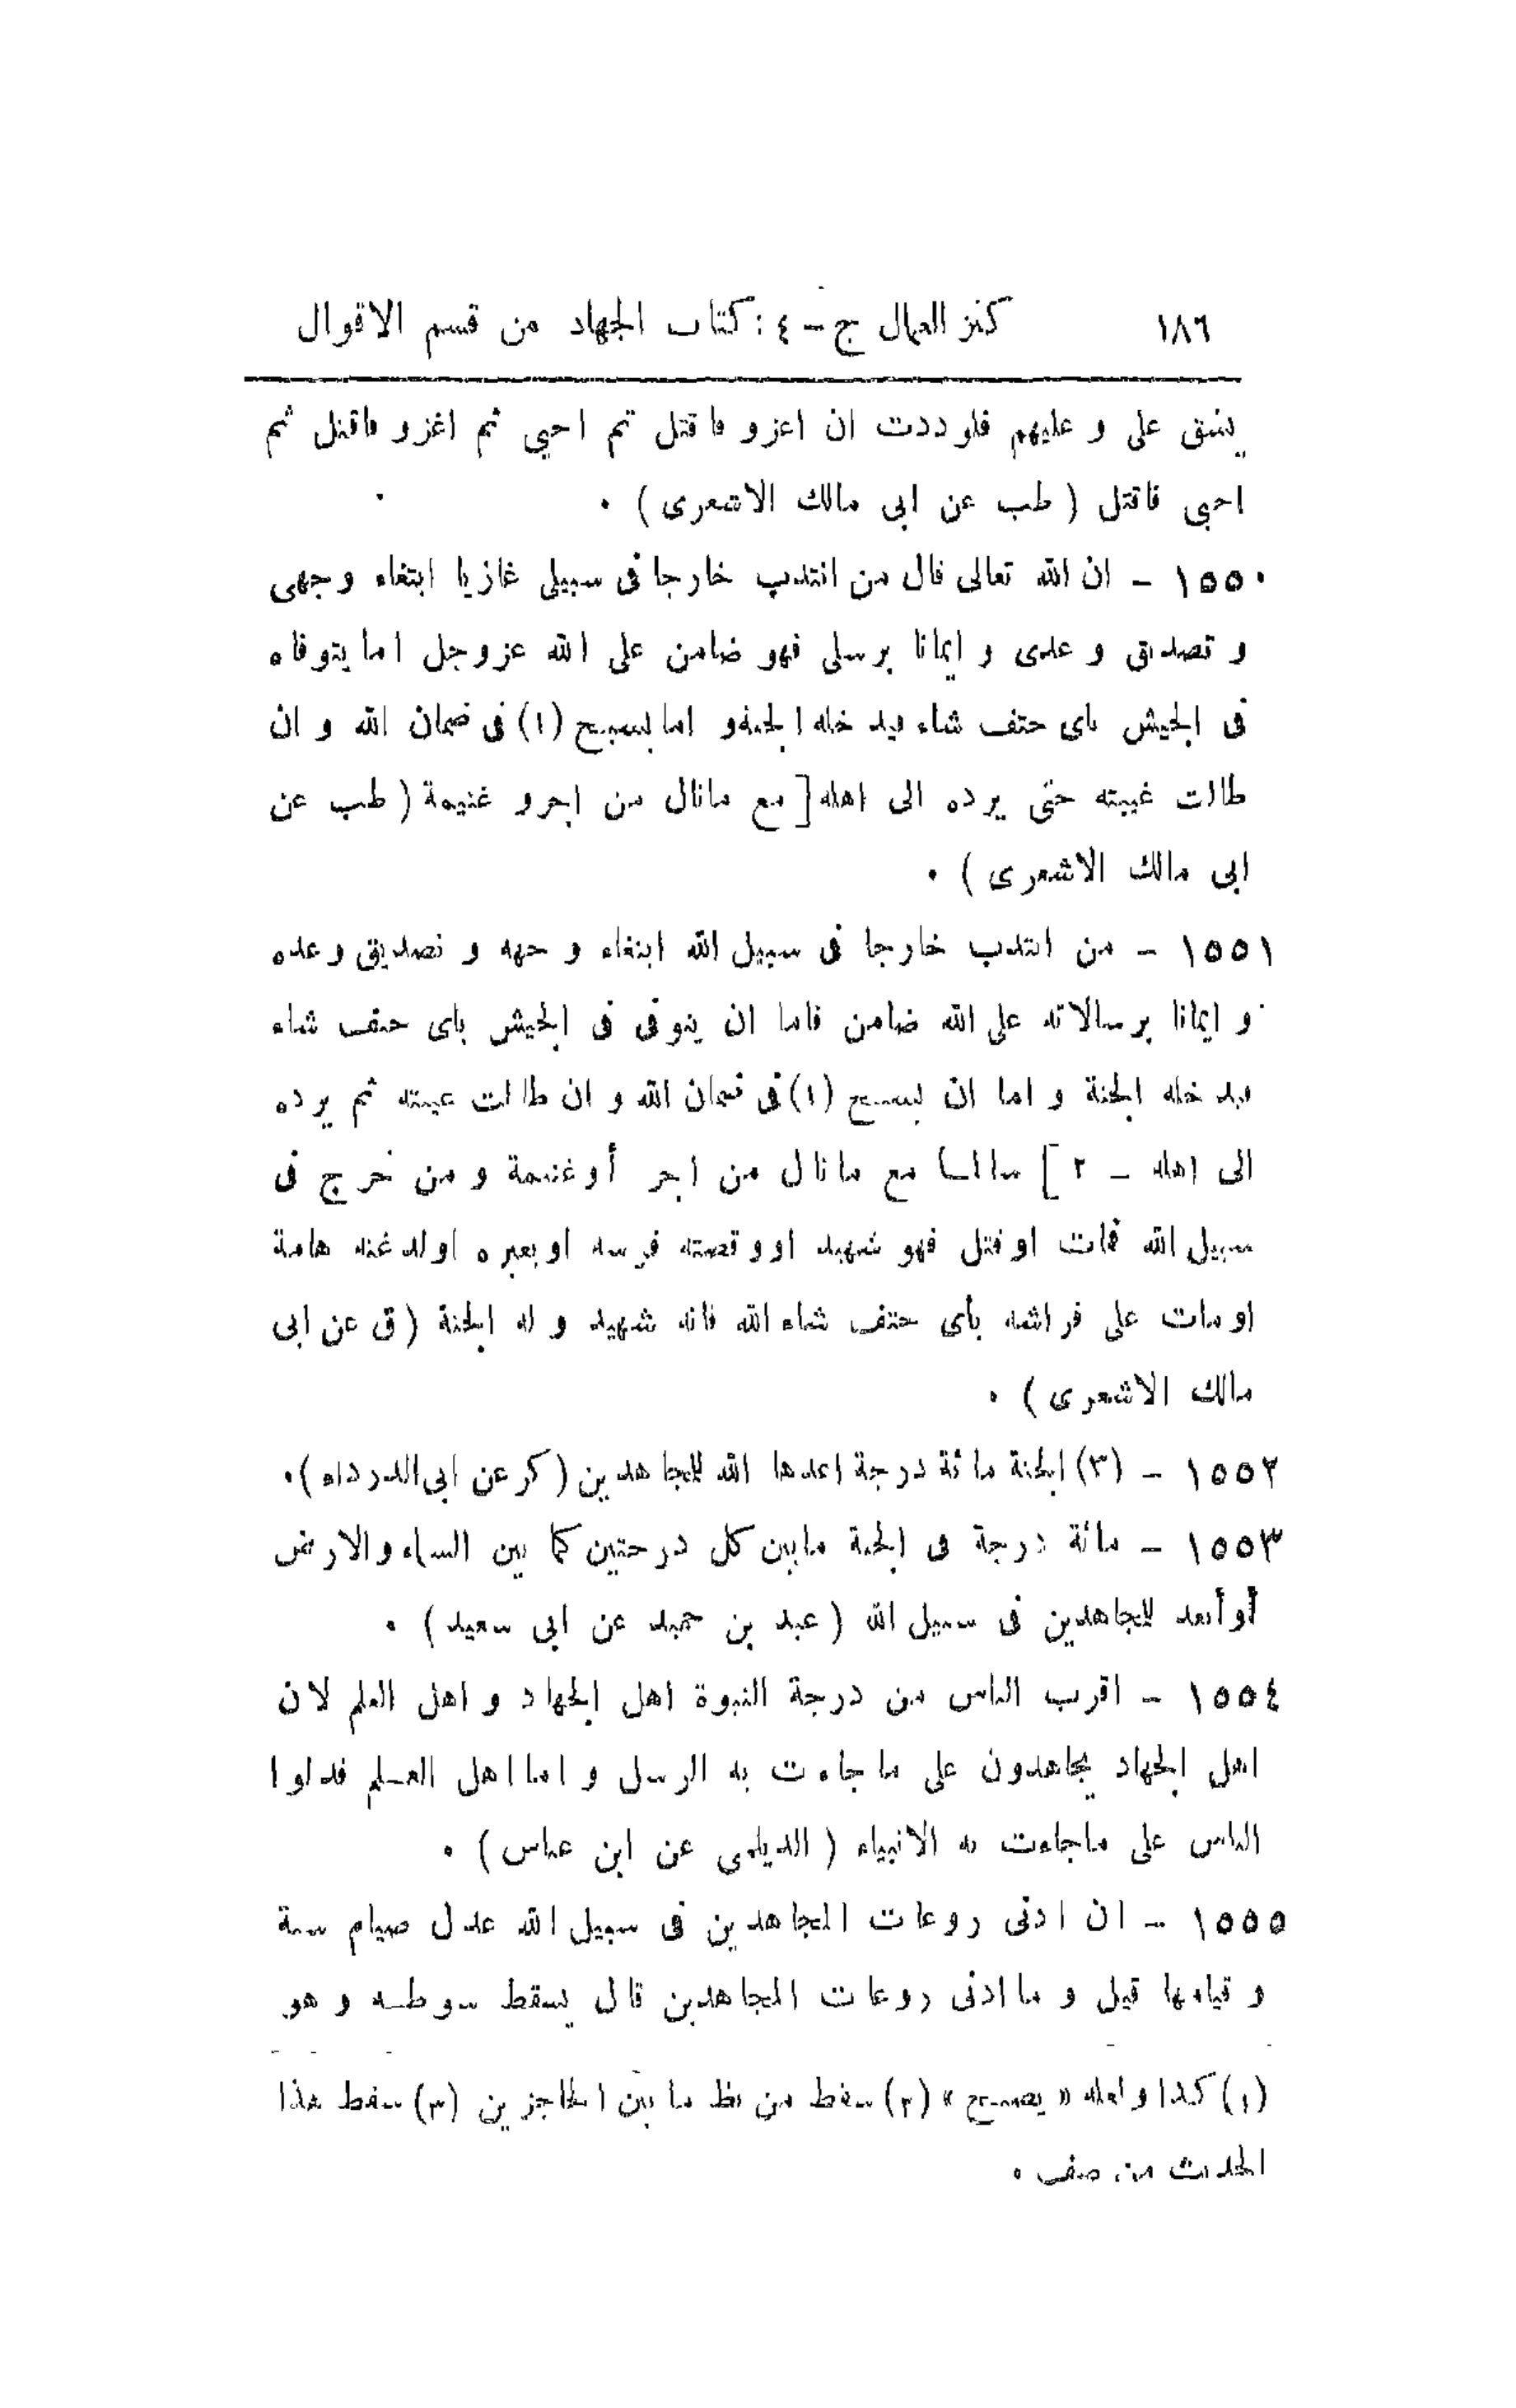 ١٨٦ كنز العمال ج - ٤ : كتاب الجهاد من قسم الاقوال
يشق على و عليهم فلوددت ان اغزو فاقتل ثم احيي ثم اغزو فاقتل ثم
احيى فاقتل ( طب عن ابى مالك الاشعرى ) .
١٥٥٠ - ان الله تعالى قال من انتدب خارجا فى سبيلى غازيا ابتغاء وجهى
و تصديق وعدى و ايمانا برسلى فهو ضامن على الله عزوجل اما يتوفاه
فى الجيش باى حتف شاء فيدخله الجنة و اما يسيح (١) فى ضمان الله و ان
طالت غيبته حتى يرده الى اهله [ مع مانال من اجر و غنيمة ( طب عن
ابى مالك الاشعرى ) .
١٥٥١ - من انتدب خارجا فى سبيل الله ابتغاء وجهه و تصديق وعده
و ايمانا برسالاته على الله ضامن فاما ان يتوفى فى الجيش باى حتف شاء
فيدخله الجنة و اما ان يسيح (١) فى ضمان الله و ان طالت غيبته ثم يرده
الى اهله - ٢ ] سالما مع ما نال من اجر أو غنيمة و من خرج فى
سبيل الله فمات او قتل فهو شهيد او وقصته فرسه او بعيره او لدغته هامة
او مات على فراشه بأى حتف شاء الله فانه شهيد و له الجنة ( ق عن ابى
مالك الاشعرى ) .
١٥٥٢ - (٣) الجنة مائة درجة اعدها الله للمجاهدين ( كر عن ابى الدرداء ) .
١٥٥٣ - مائة درجة فى الجنة مابين كل درجتين كما بين السماء والارض
أو أبعد للمجاهدين فى سبيل الله ( عبد بن حميد عن ابى سعيد ) .
١٥٥٤ - اقرب الناس من درجة النبوة اهل الجهاد و اهل العلم لان
اهل الجهاد يجاهدون على ما جاءت به الرسل و اما اهل العلم فدلوا
الناس على ماجاءت به الانبياء ( الديلمى عن ابن عباس ) .
١٥٥٥ - ان ادنى روعات المجاهدين فى سبيل الله عدل صيام سنة
و قيامها قيل و ما ادنى روعات المجاهدين قال يسقط سوطه و هو
(١) كذا و لعله « يصبح » (٢) سقط من نظ ما بين الحاجزين (٣) سقط هذا
الحديث من صف .